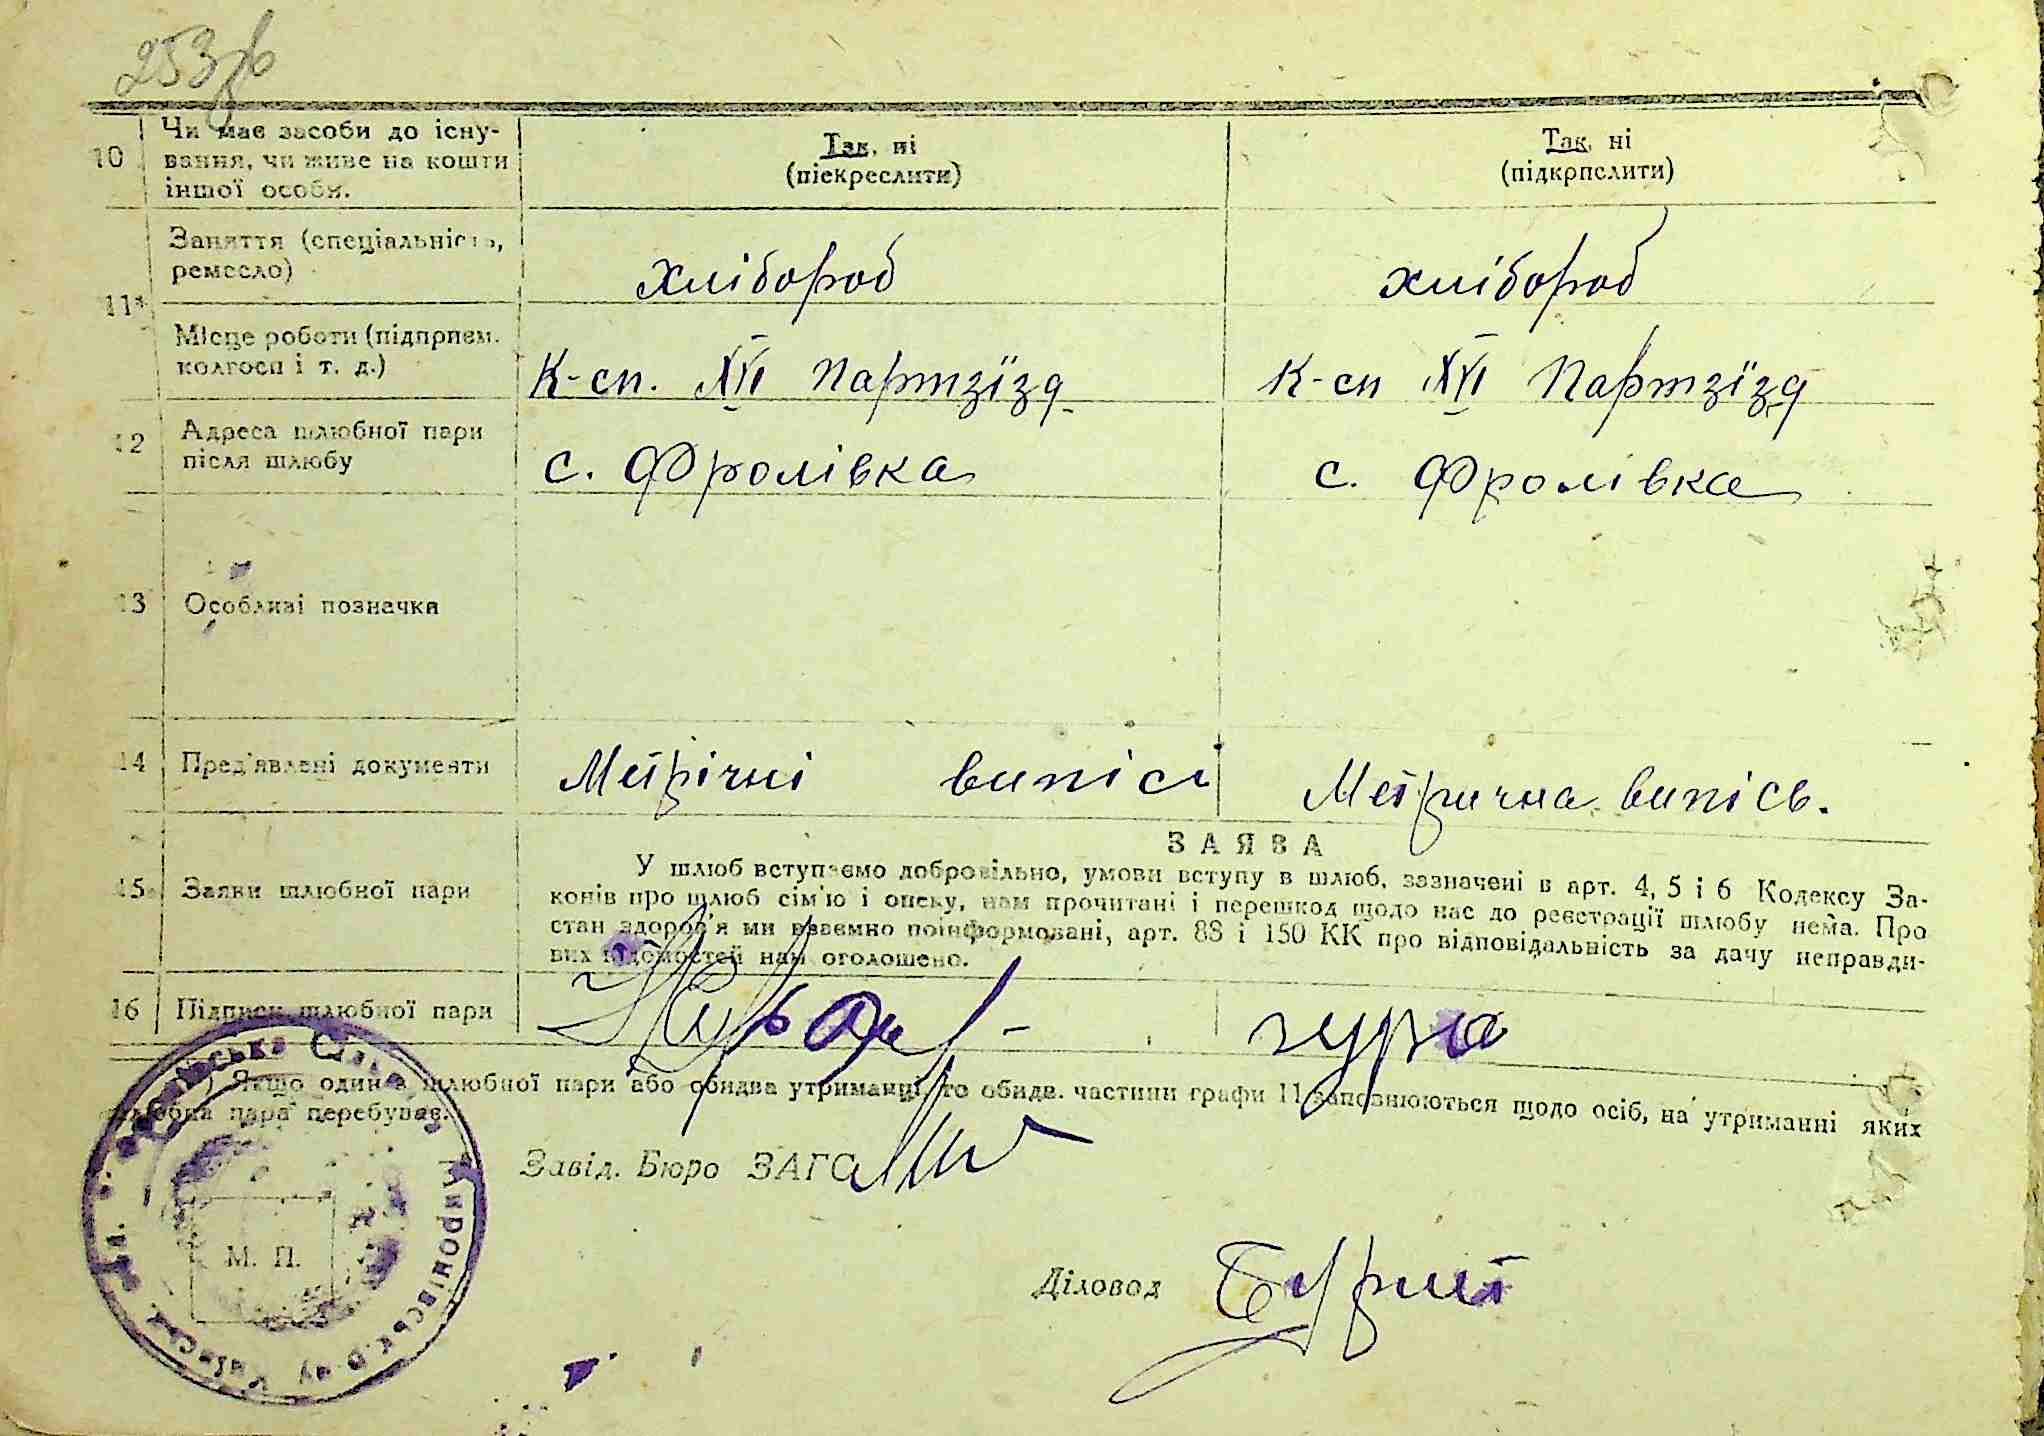 253
10 Чи має засоби до існу-
вання, чи живе на кошти
іншої особи.
Так, ні
(піекреслити)
Так, ні
(підкрпслити)
11 Заняття (спеціальність,
ремесло)
хлібороб
хлібороб
Місце роботи (підприєм.
колгосп і т. д.)
К-сп. XVI Партзїзд
К-сп XVI Партзїзд
12 Адреса шлюбної пари
після шлюбу
с. Фролівка
с. Фролівка
13 Особливі позначки
14 Пред'явлені документи
Метрічні випісі
Метрична випісь.
15 Заяви шлюбної пари
ЗАЯВА
У шлюб вступаємо добровільно, умови вступу в шлюб, зазначені в арт. 4, 5 і 6 Кодексу За-
конів про шлюб сім'ю і опеку, нам прочитані і перешкод щодо нас до реєстрації шлюбу нема. Про
стан здоров'я ми взаємно поінформовані, арт. 88 і 150 КК про відповідальність за дачу неправди-
вих відомостей нам оголошено.
16 Підписи шлюбної пари
) Якщо один з шлюбної пари або обидва утриманці, то обидв. частини графи 11 заповнюються щодо осіб, на утриманні яких
шлюбна пара перебуває.
Завід. Бюро ЗАГС
М. П.
Діловод